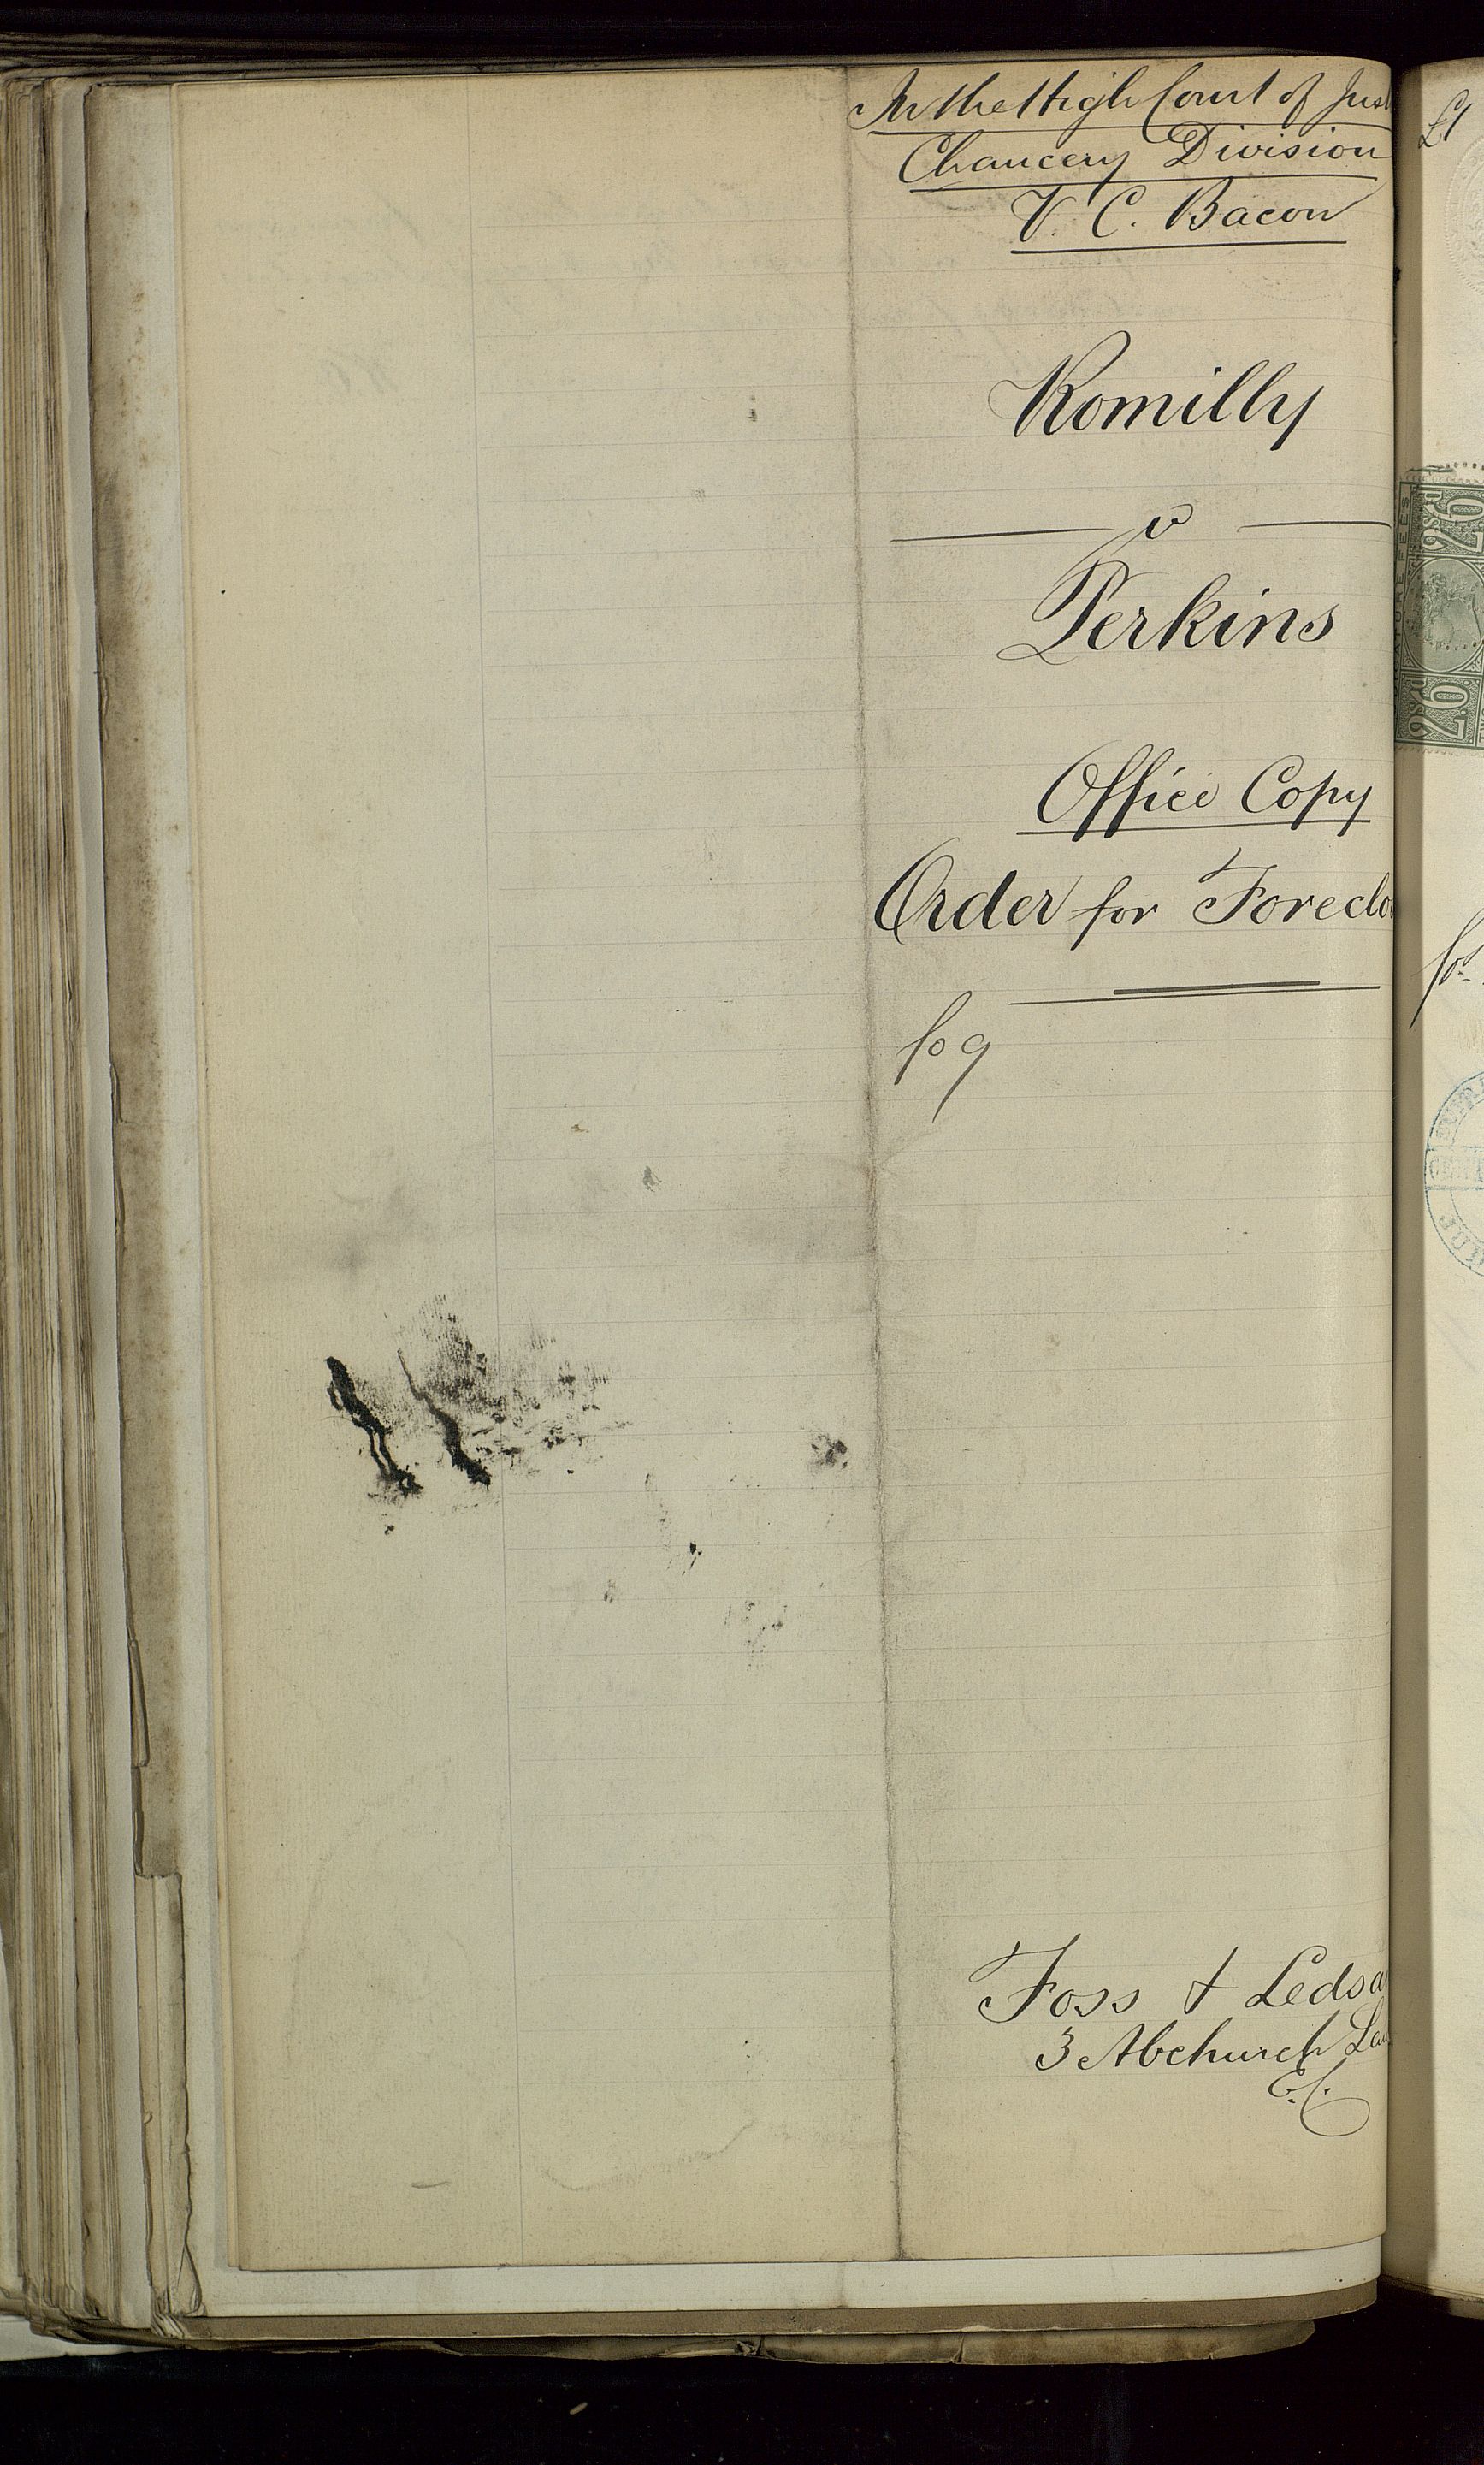 In the High Court of Just
Chancery Division
V. C. Bacon
Romilly
v
Perkins
Office Copy
Order for Foreclo
fo 9
Foss & Ledsa
3 Abchurch La
E.C.
£1
2/6
2/6
fo.